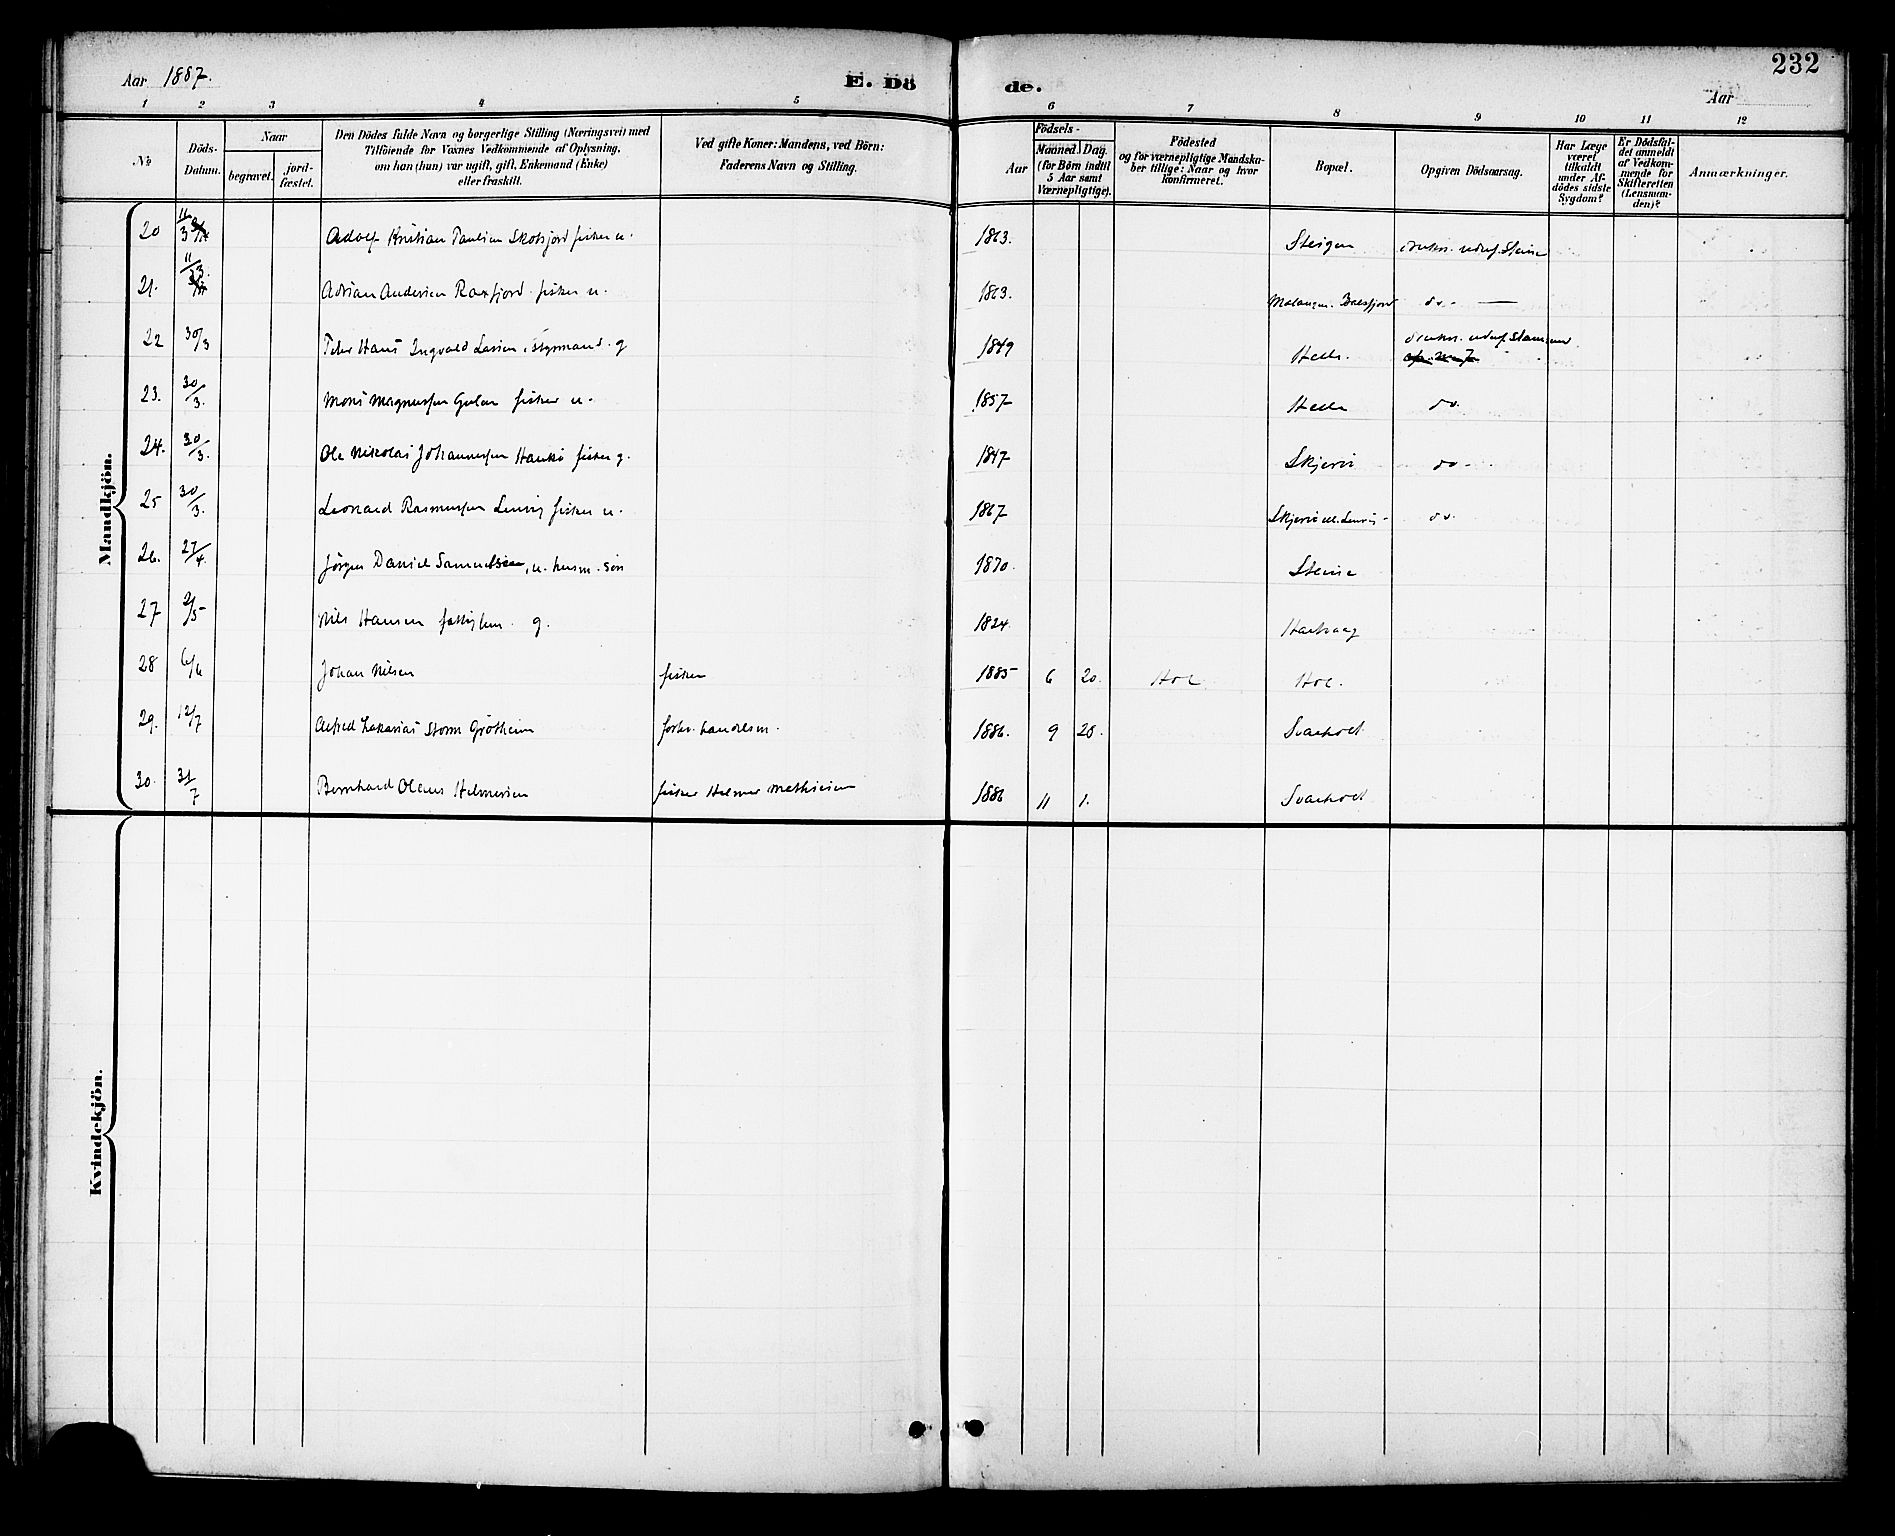 232
Aar 1887.
E. Dö de.
Aar
1 2 3 4 5 6 7 8 9 10 11 12
No
Döds-Datum.
Naar
begravet.
jord-fæstet.
Den Dödes fulde Navn og borgerlige Stilling (Næringsvei) med
Tilföiende for Voxnes Vedkommende af Oplysning,
om han (hun) var ugift, gift, Enkemand (Enke)
eller fraskilt.
Ved gifte Koner: Mandens, ved Börn:
Faderens Navn og Stilling.
Födsels-
Aar
Maaned. Dag.
(for Börn indtil
5 Aar samt
Værnepligtige).
Födested
og for værnepligtige Mandska-
ber tillige: Naar og hvor
konfirmeret.
Bopæl.
Opgiven Dödsaarsag.
Har Læge
været
tilkaldt
under Af-
dödes sidste
Sygdom?
Er Dödsfal-
det anmeldt
af Vedkom-
mende for
Skifteretten
(Lensman-
den)?
Anmærkninger.
Mandkjön.
20 11/3 Adolf Kristian Paulsen fisker u. 1863. Steigen
21. 11/3. Adrian Andersen fisker u. 1863. Malangen. Balsfjord do. —
22 30/3 Peder Hans Ingvald Larsen, g 1849 Helle.
23. 30/3. Mons Magnussen fisker u. 1857 Helle do.
24. 30/3. Ole Nikolai Johannessen Haukö fisker g. 1847 Skjervö do.
25 30/3. Leonard Rasmussen Lenvig fisker u. 1867 do.
26. 27/4. Jörgen Daniel Samuelsen, u. husm. sön 1870. Steine
27 2/5 Nils Hansen g. 1824.
28 6/6 Johan Nilsen fisker 1885 6 20. Hol Hol.
29. 12/7 Alfred Zakarias Storm Grötheim forhv. handelsm. 1886. 9 20. Svarholt
30. 31/7 Bernhard Olaus Helmersen fisker Helmer Mathisen 1886 11 1. Svarholt
Kvindekjön.